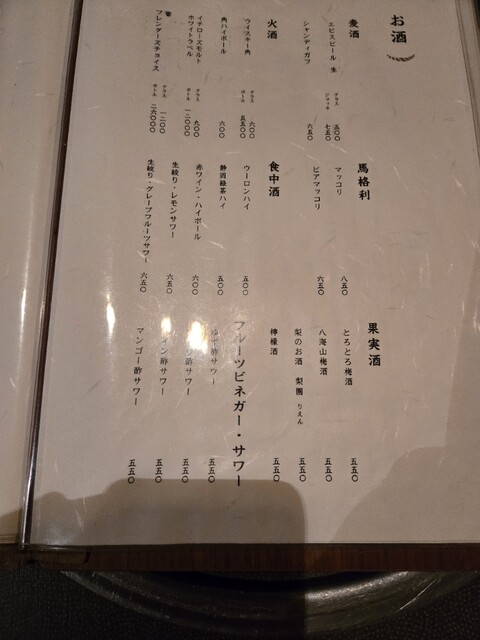 お酒
麦酒
エビスビール 生
グラス 五〇〇
ジョッキ 七五〇
シャンディガフ 六五〇
火酒
ウイスキー角
グラス 六〇〇
ボトル 五五〇〇
角ハイボール 六〇〇
イチローズモルト
ホワイトラベル
グラス 九〇〇
ボトル 一二〇〇〇
響
ブレンダーズチョイス
グラス 一二〇〇
ボトル 二六〇〇〇
馬格利
マッコリ 八五〇
ビアマッコリ 六五〇
食中酒
ウーロンハイ 五〇〇
静岡緑茶ハイ 五〇〇
赤ワイン・ハイボール 六〇〇
生絞り・レモンサワー 六五〇
生絞り・グレープフルーツサワー 六五〇
果実酒
とろとろ梅酒 五五〇
八海山梅酒 五五〇
梨のお酒 梨園 りえん 五五〇
檸檬酒 五五〇
フルーツビネガー・サワー
酢サワー 五五〇
酢サワー 五五〇
イン酢サワー 五五〇
マンゴー酢サワー 五五〇